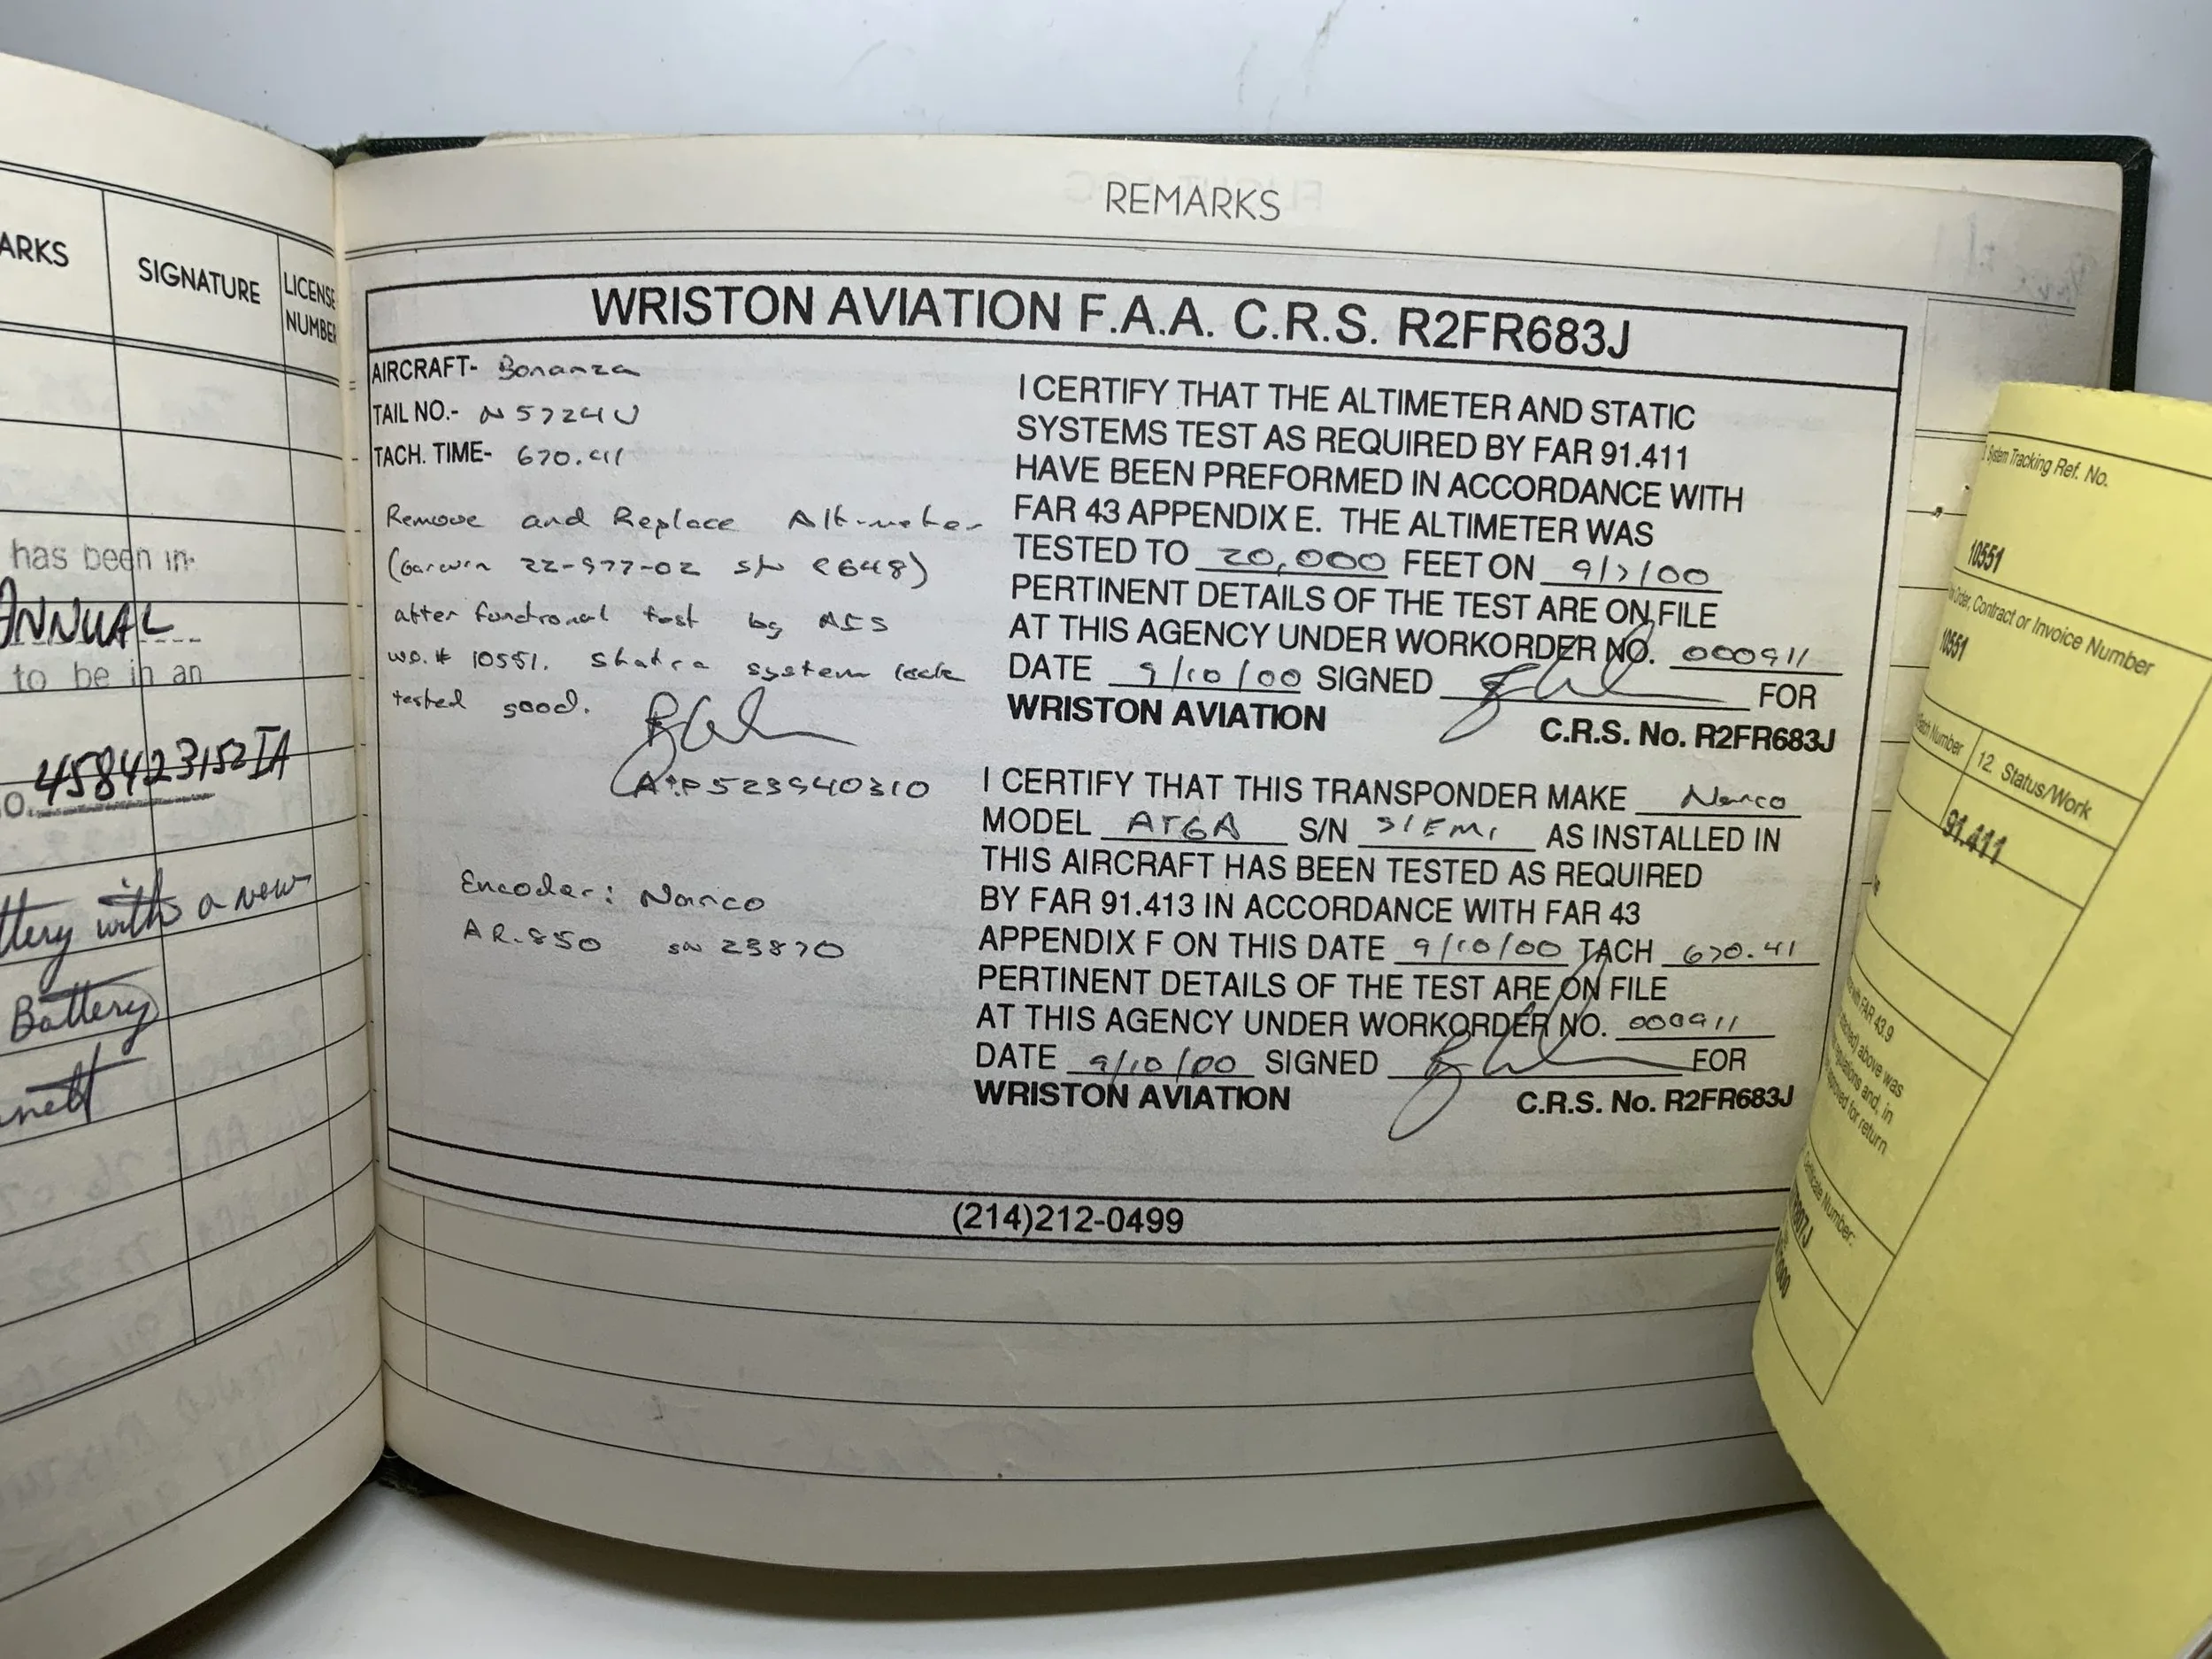 ARKS
SIGNATURE
LICENSE
NUMBER
has been in-
ANNUAL
to be in an
O. 458423152IA
ttery with a new
Battery
nett
REMARKS
WRISTON AVIATION F.A.A. C.R.S. R2FR683J
AIRCRAFT- Bonanza
TAIL NO.- N5724U
TACH. TIME- 670.41
Remove and Replace Altimeter
(Garwin 22-977-02 S/N
after functional test by AIS
wo.# 10551. Static system leak
tested good.
A&P 523940310
Encoder: Narco
AR-850 SN 23870
I CERTIFY THAT THE ALTIMETER AND STATIC
SYSTEMS TEST AS REQUIRED BY FAR 91.411
HAVE BEEN PREFORMED IN ACCORDANCE WITH
FAR 43 APPENDIX E. THE ALTIMETER WAS
TESTED TO 20,000 FEET ON 9/7/00
PERTINENT DETAILS OF THE TEST ARE ON FILE
AT THIS AGENCY UNDER WORKORDER NO. 000911
DATE 9/10/00 SIGNED FOR
WRISTON AVIATION C.R.S. No. R2FR683J
I CERTIFY THAT THIS TRANSPONDER MAKE Narco
MODEL AT6A S/N AS INSTALLED IN
THIS AIRCRAFT HAS BEEN TESTED AS REQUIRED
BY FAR 91.413 IN ACCORDANCE WITH FAR 43
APPENDIX F ON THIS DATE 9/10/00 TACH 670.41
PERTINENT DETAILS OF THE TEST ARE ON FILE
AT THIS AGENCY UNDER WORKORDER NO. 000911
DATE 9/10/00 SIGNED FOR
WRISTON AVIATION C.R.S. No. R2FR683J
(214)212-0499
System Tracking Ref. No.
10551
Order, Contract or Invoice Number
10551
Number
12. Status/Work
91.411
with FAR 43.9
above was
regulations and, in
approved for return
Certificate Number: